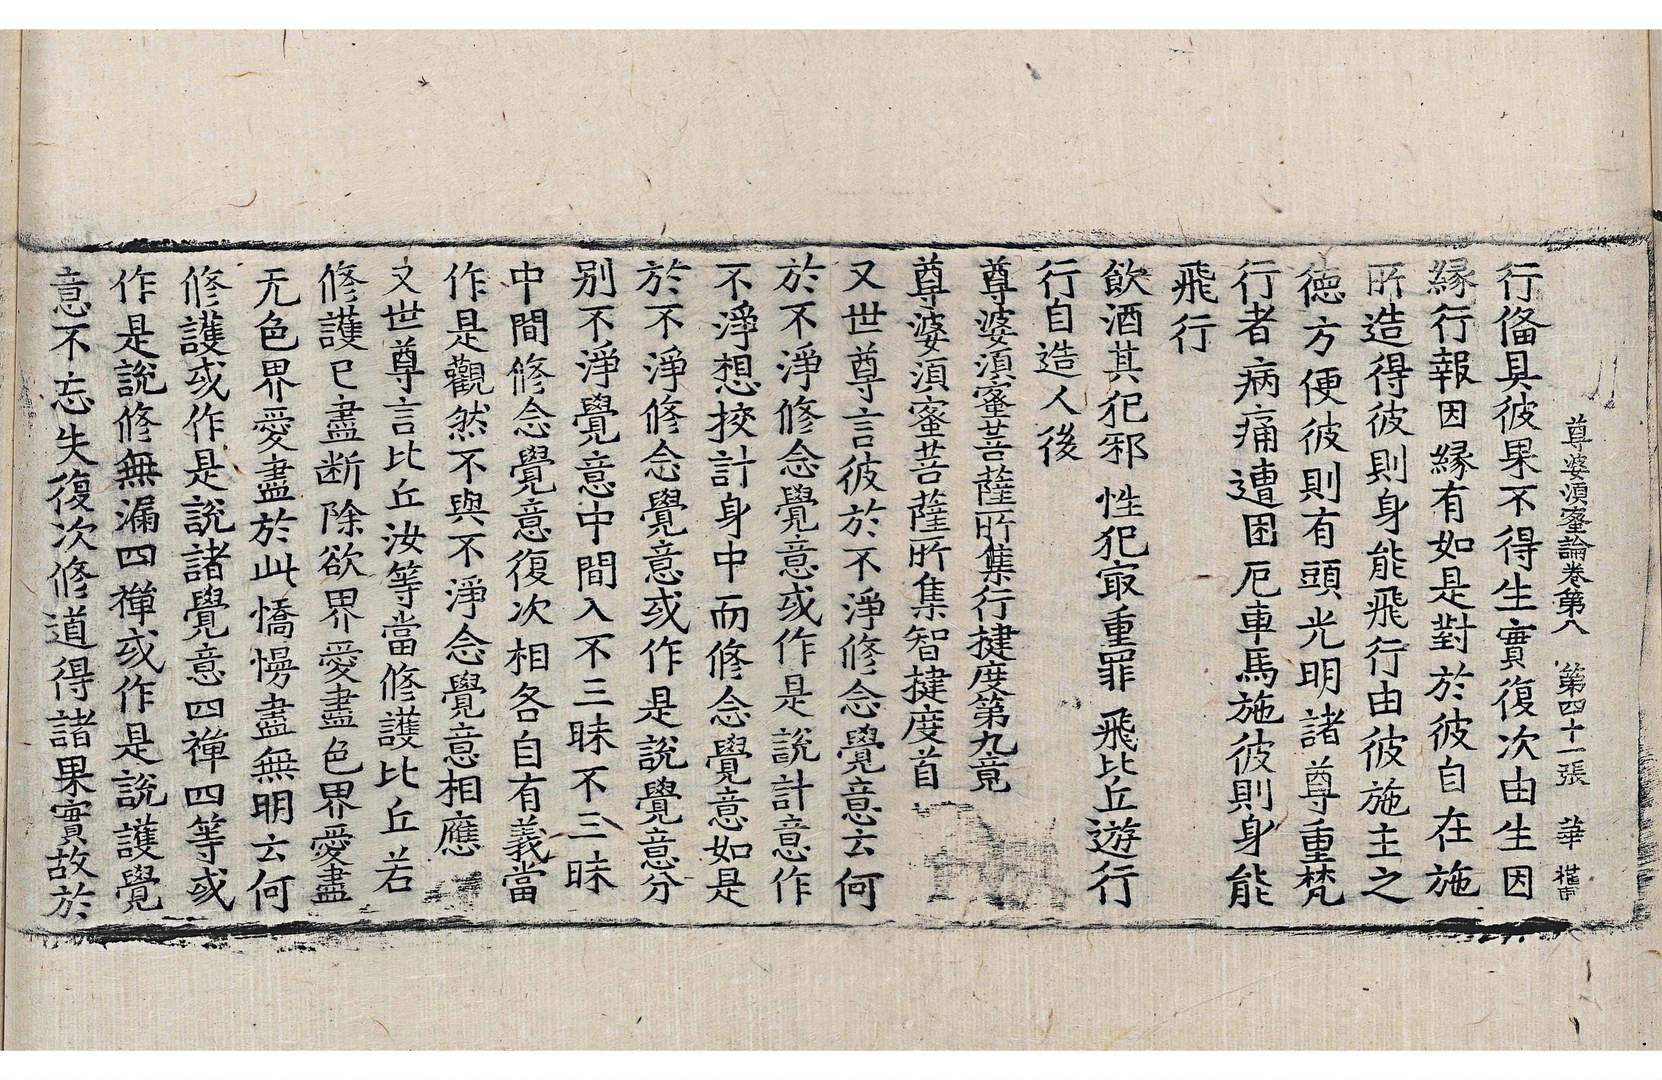 尊婆湏蜜論卷第八 第四十一張 華
行俻具彼果不得生實復次由生因
緣行報因緣有如是對於彼自在施
所造得彼則身能飛行由彼施主之
德方便彼則有頭光明諸尊重梵
行者病痛遭困厄車馬施彼則身能
飛行
飲酒其犯邪 性犯㝡重罪 飛比丘遊行
行自造人後
尊婆湏蜜菩薩所集行揵度第九竟
尊婆湏蜜菩薩所集智揵度首
又世尊言彼於不淨修念覺意云何
於不淨修念覺意或作是說計意作
不淨想挍計身中而修念覺意如是
於不淨修念覺意或作是說覺意分
别不淨覺意中間入不三昧不三昧
中間修念覺意復次相各自有義當
作是觀然不與不淨念覺意相應
又世尊言比丘汝等當修護比丘若
修護已盡断除欲界愛盡色界愛盡
无色界愛盡於此憍慢盡無明云何
修護或作是說諸覺意四禪四等或
作是說修無漏四禪或作是說護覺
意不忘失復次修道得諸果實故於